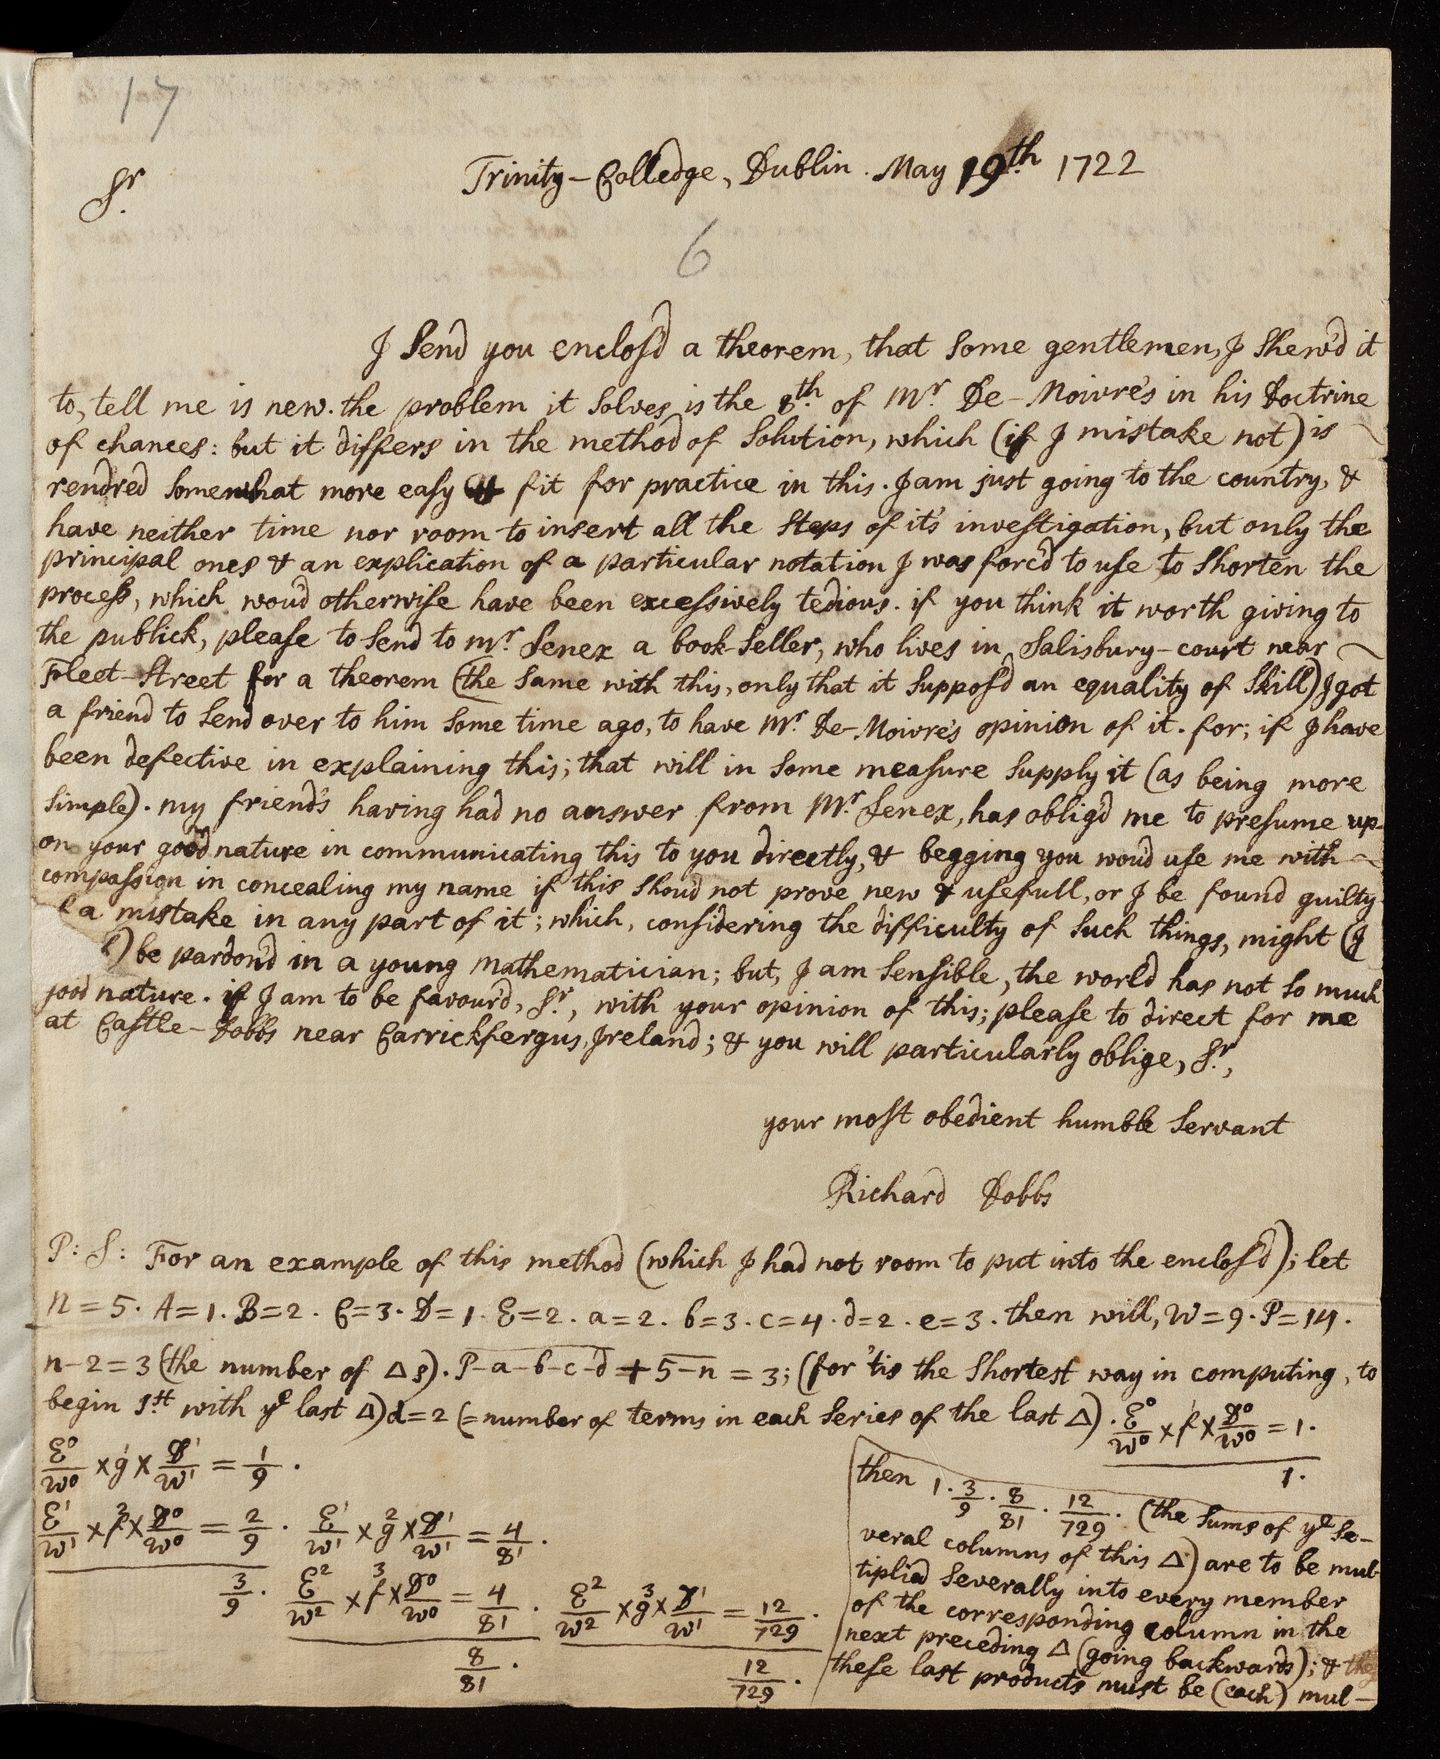 17
Sr. Trinity-Colledge, Dublin. May 19th. 1722
6
I send you enclos'd a theorem, that some gentlemen, I shew'd it
to, tell me is new. the problem it solves is the 8th. of Mr. De-Moivre's in his Doctrine
of chances: but it differs in the method of solution, which (if I mistake not) is
rendred somewhat more easy & fit for practice in this. I am just going to the country, &
have neither time nor room to insert all the steps of it's investigation, but only the
principal ones & an explication of a particular notation I was forc'd to use to shorten the
process, which wou'd otherwise have been excessively tedious. if you think it worth giving to
the publick, please to send to Mr. Senex a book-seller, who lives in Salisbury-court near
Fleet-Street for a theorem (the same with this, only that it suppos'd an equality of skill) I got
a friend to send over to him some time ago, to have Mr. De-Moivre's opinion of it. for; if I have
been defective in explaining this; that will in some measure supply it (as being more
simple). my friend's having had no answer from Mr. Senex, has oblig'd me to presume up-
on your good nature in communicating this to you directly, & begging you wou'd use me with
compassion in concealing my name if this shou'd not prove new & usefull, or I be found guilty
a mistake in any part of it; which, considering the difficulty of such things, might (I
) be pardon'd in a young mathematician; but, I am sensible, the world has not so much
good nature. if I am to be favour'd, Sr., with your opinion of this; please to direct for me
at Castle-Dobbs near Carrickfergus, Ireland; & you will particularly oblige, Sr.,
your most obedient humble servant
Richard Dobbs
P: S: For an example of this method (which I had not room to put into the enclos'd); let
n = 5. A = 1. B = 2. C = 3. D = 1. E = 2. a = 2. b = 3. c = 4. d = 2. e = 3. then will, W = 9. P = 14.
n-2 = 3 (the number of Δs). P-a-b-c-d + 5-n = 3; (for 'tis the shortest way in computing, to
begin 1st with ye last Δ) d = 2 (= number of terms in each series of the last Δ). E⁰/w⁰ × f × D⁰/w⁰ = 1.
1.
E⁰/w⁰ × g × D¹/w¹ = 1/9.
E¹/w¹ × f² × D⁰/w⁰ = 2/9. E¹/w¹ × g² × D¹/w¹ = 4/81.
3/9. E²/w² × f³ × D⁰/w⁰ = 4/81. E²/w² × g³ × D¹/w¹ = 12/729.
8/81. 12/729.
then 1. 3/9. 8/81. 12/729. (the sums of ye se-
veral columns of this Δ) are to be mul-
tiplied severally into every member
of the corresponding column in the
next preceding Δ (going backwards); & the
these last products must be (each) mul-